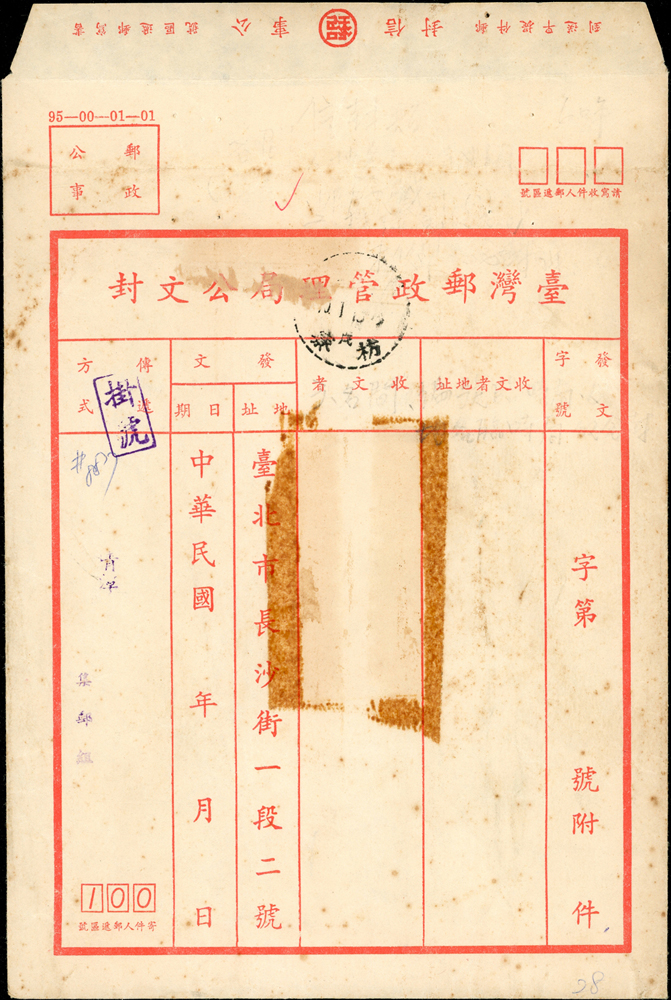 請書寫郵遞區號 公事信封 郵 郵件提早送到
95—00—01—01
郵政
公事
請寫收件人郵遞區號
臺灣郵政管理局公文封
發文字號
收文者地址
收文者
發文
地址
日期
傳遞方式
掛號
字第 號附件
臺北市長沙街一段二號
中華民國 年 月 日
集郵組
100
寄件人郵遞區號
38